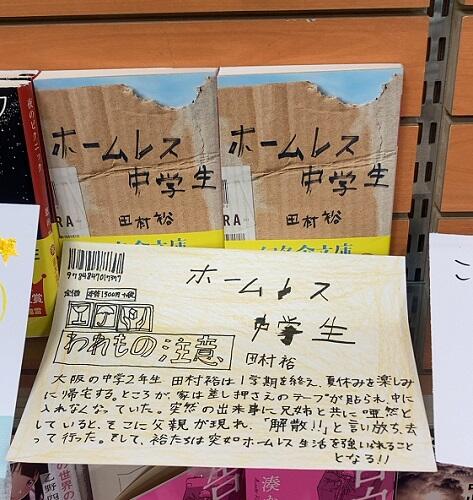 ホームレス
中学生
田村裕
RA
ホームレス
中学生
田村裕
RA
夜のピクニック
9784847017377
定価 本体1300円+税
われもの注意
ホームレス
中学生
田村裕
大阪の中学2年生 田村裕は1学期を終え、夏休みを楽しみ
に帰宅する。ところが、家は差し押さえのテープが貼られ、中に
入れなくなっていた。突然の出来事に兄姉と共に唖然と
していると、そこに父親が現れ、「解散!!」と言い放ち、去
って行った。そして、裕たちは突如ホームレス生活を強いられること
となる!!
こ